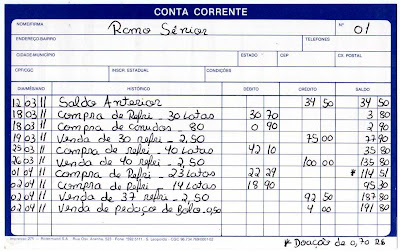 CONTA CORRENTE
NOME/FIRMA Ramo Sênior Nº 01
ENDEREÇO/BAIRRO TELEFONES
CIDADE/MUNICÍPIO ESTADO CEP CX. POSTAL
CPF/CGC INSCR. ESTADUAL CONDIÇÕES
DIA/MÊS/ANO HISTÓRICO DÉBITO CRÉDITO SALDO
12 03 11 Saldo Anterior 34 50 34 50
18 03 11 Compra de Refri - 30 Latas 30 70 3 80
18 03 11 Compra de Canudos - 80 0 90 2 90
19 03 11 Venda de 30 refri - 2,50 75 00 77 90
25 03 11 Compra de refri - 40 Latas 42 10 35 80
26 03 11 Venda de 40 refri - 2,50 100 00 135 80
01 04 11 Compra de Refri - 23 Latas 22 29 * 114 51
02 04 11 Compra de refri - 14 Latas 18 90 95 30
02 04 11 Venda de 37 refri - 2,50 92 50 187 80
02 04 11 Venda de pedaço de Bolo 0,50 4 00 191 80
* Doação de 0,70 R$